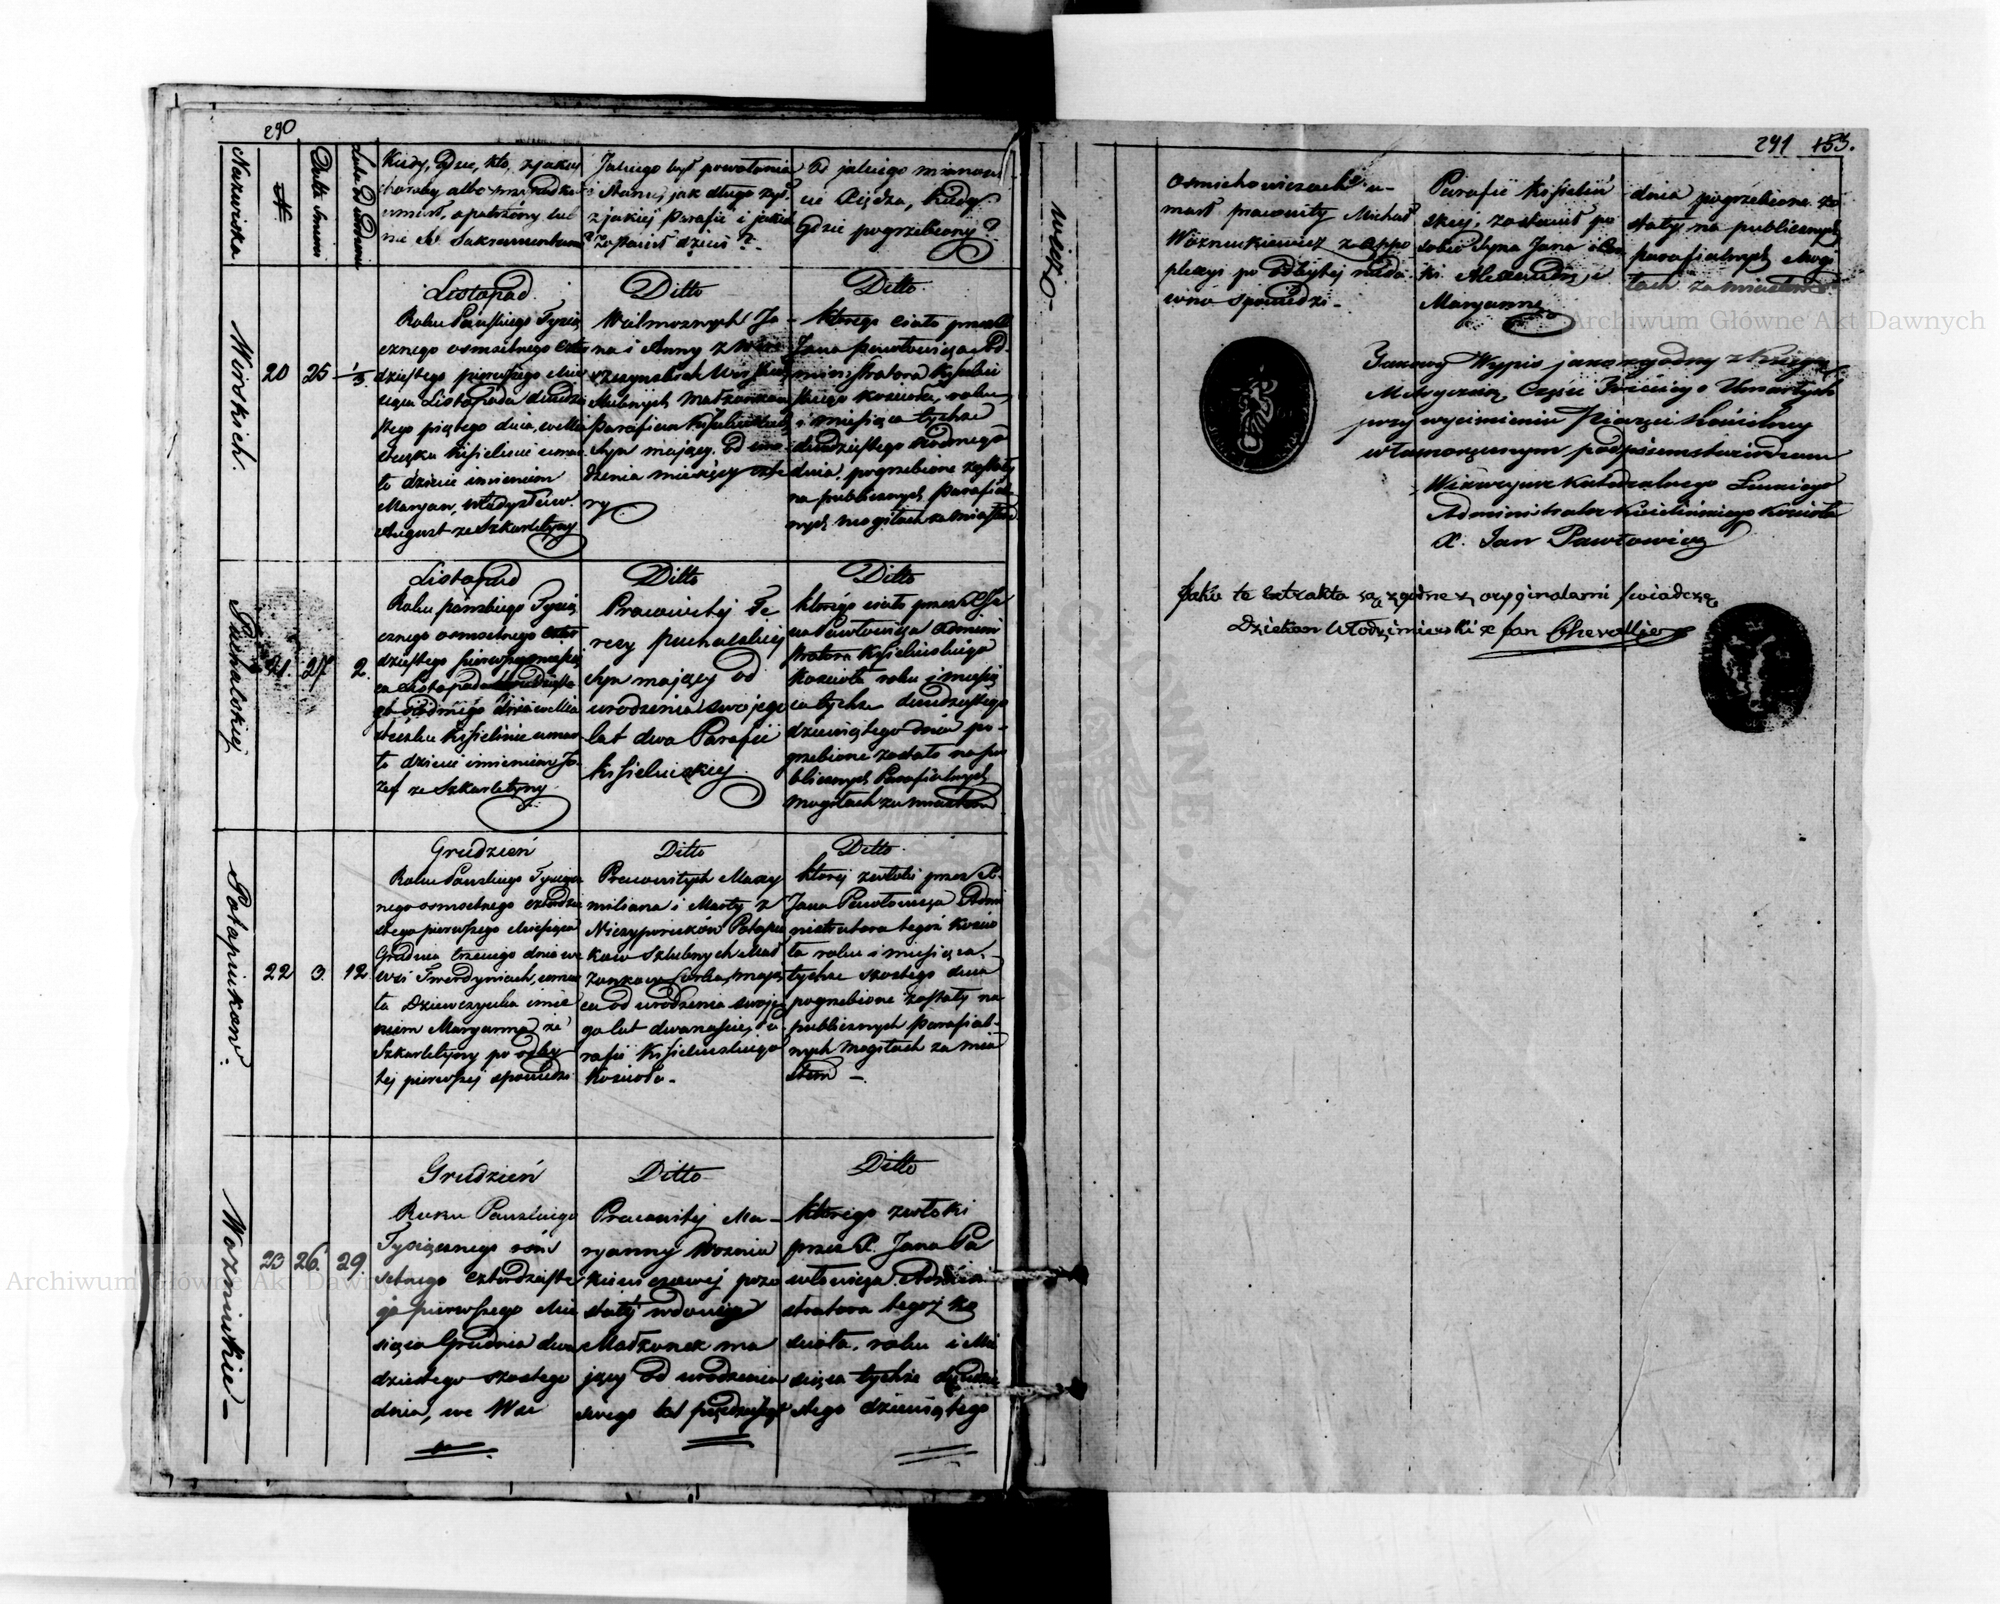 290
Nazwiska
N
Data śmierci
Lata od urodzenia
Kiedy, Gdzie, kto, z jakiej
choroby albo
umarł, opatrzony lub
nie SS. Sakramentami
Jakiego był powołania
i stanu, jak długo żył
z jakiej parafii i jakie
zostawił dzieci?
Od jakiego miano
cie Xiędza, kiedy
Gdzie pogrzebiony?
Worskich.
20
25
Listopad
Roku Pańskiego Tysią
cznego osmsetnego czter
dziestego pierwszego mie
siąca Listopada dwudzie
stego piątego dnia, w mia
steczku Kisielinie umar
ło dziecie imieniem
Maryan, Władysław
August ze Szkarlatyny
Ditto
Wielmożnych Ja
na i Anny z
Worskich
ślubnych Małżonków
parafian Kisielinskich
Syn mający od uro
dzenia miesięcy czte
ry
Ditto
którego ciało przez X
Jana Pawłowicza Ad
ministratora Kisieliń
skiego kościoła, roku
i miesiąca tychże
dwudziestego siódmego
dnia, pogrzebione zostały
na publicznych parafial
nych mogiłach za miastem
Puchalskiej
21.
27
2.
Listopad
Roku pańskiego Tysią
cznego osmsetnego czter
dziestego pierwszego miesią
ca Listopada dwudzieste
go siódmego dnia w mia
steczku Kisielinie umar
ło dziecie imieniem Jó
zef ze Szkarlatyny
Ditto
Pracowitej Te
resy Puchalskiej
Syn mający od
urodzenia swojego
lat dwa Parafii
Kisielinskiej
Ditto
którego ciało przez X Ja
na Pawłowicza Admini
stratora Kisielinskiego
Kościoła roku i miesią
ca tychże dwudziestego
dziewiątego dnia po
grzebione zostało na pu
blicznych Parafialnych
mogiłach za miastem
Potapiukow:
22
3.
12
Grudzień
Roku Pańskiego Tysiącz
nego osmsetnego czterdzie
stego pierwszego Miesiąca
Grudnia trzeciego dnia we
Wsi Twerdyniach, umar
ła Dziewczynka imie
niem Maryanna ze
Szkarlatyny po odby
tej pierwszej spowiedzi
Ditto
Pracowitych Maxy
miliana i Marty z
Niczyporuków Potapiu
kow Szlubnych Mał
żonkow Corka, mają
ca od urodzenia swoje
go lat dwanaście, Pa
rafii Kisielinskiego
Kościoła.
Ditto
której zwłoki przez X.
Jana Pawłowicza Admi
nistratora tegoż Kościo
ła roku i miesiąca
tychże szostego dnia
pogrzebione zostały na
publicznych parafial
nych mogiłach za mia
stem
Wozniukie-
23
26.
29.
Grudzień
Roku Pańskiego
Tysiącznego osm
setnego czterdzieste
go pierwszego Mie
siąca Grudnia dwu
dziestego szostego
dnia, we Wsi
Ditto
Pracowitej Ma-
ryanny Wozniu
kiewiczowej pozo
stałej wdowie
Małżonek ma
jący od urodzenia
swego lat
Ditto
którego zwłoki
przez X. Jana Pa
włowicza Admini
stratora tegoż Ko
ścioła, roku i Mie
siąca tychże dwudzie
stego dziewiątego
wicz
291 153.
Osmichowiczach u-
marł pracowity Michał
Wozniukiewicz z appo
plexyi po odbytej nieda
wno spowiedzi.
Parafii Kisieliń
skiej, zostawił po
sobie Syna Jana i Cor
ki Alexandrę i
Maryannę
dnia pogrzebione zo
stały na publicznych
parafialnych Mogi
łach za miastem
Takowy Wypis jako zgodny z Księgą
Metryczną, Części Trzeciey o Umarłych
przy wyciśnieniu Pieczęci Kościelney
własnoręcznym podpisem stwierdzam
Wikaryusz Katedralnego Łuckiego
Administrator Kisielińskiego Kościoła
X. Jan Pawłowicz
Jako te Extrakta są zgodne z oryginałami świadczę
Dziekan Włodzimierski X Jan Chevallier
Archiwum Główne Akt Dawnych
Archiwum Główne Akt Dawnych